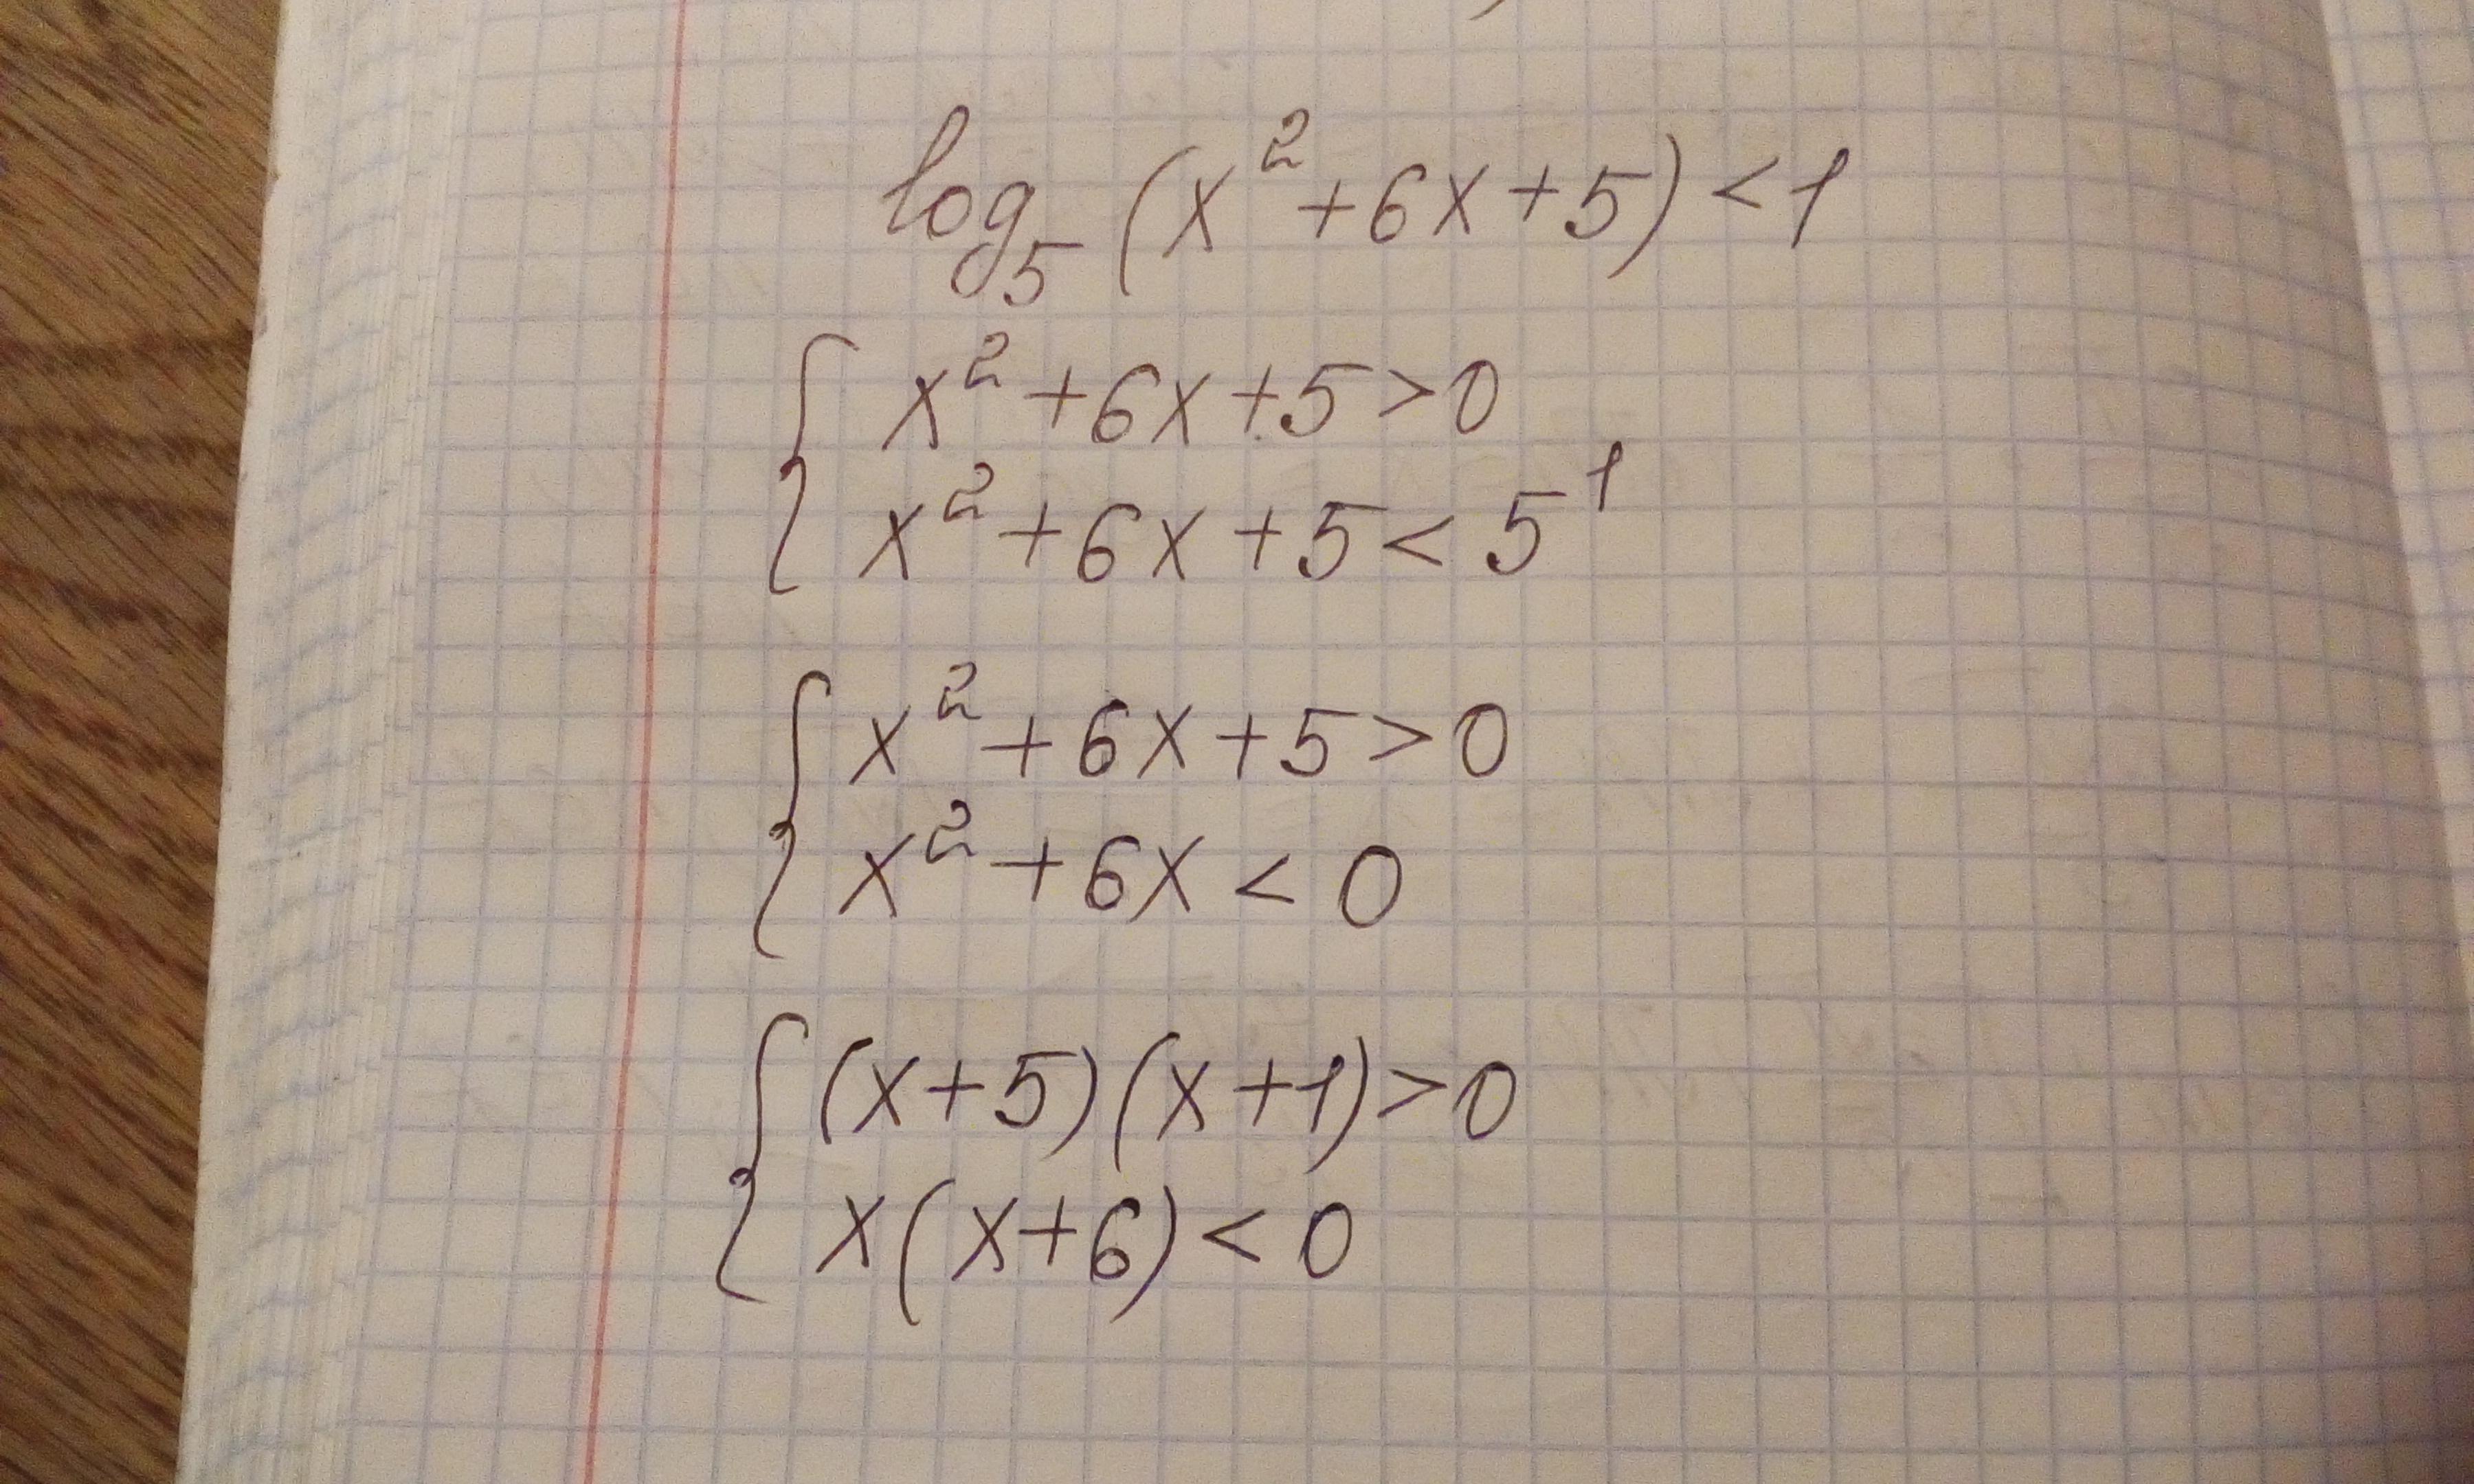 log₅(x²+6x+5)<1
x²+6x+5>0
x²+6x+5<5¹
x²+6x+5>0
x²+6x<0
(x+5)(x+1)>0
x(x+6)<0